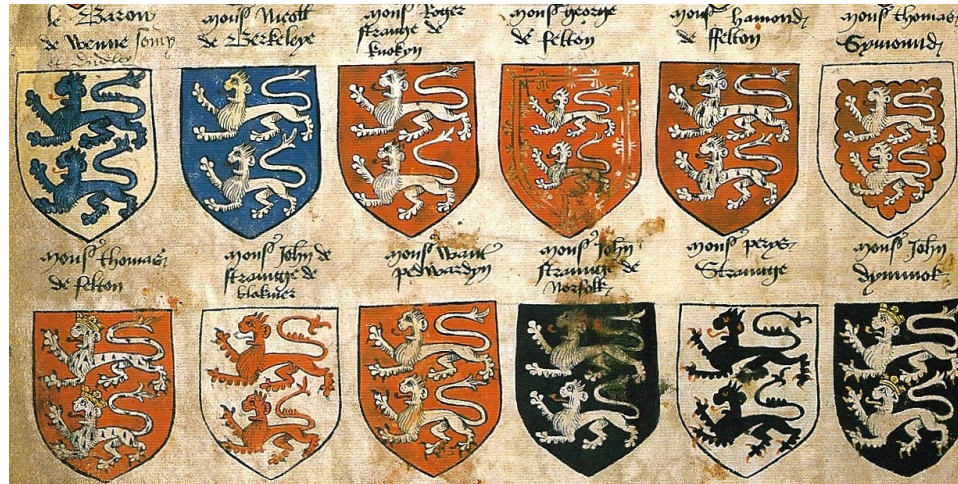 le Baron
de Wenne somp
et Dudley
mons Nicoll
de Berkeleye
mons Roger
straunge de
knokyn
mons george
de felton
mons hamond
de ffelton
mons thomas
Symonnd
mons thomas
de felton
mons John de
straunge de
blakmer
mons Waut
pedwardyn
mons John
straunge de
Norfolk
mons perys
Straunge
mons John
dymmok